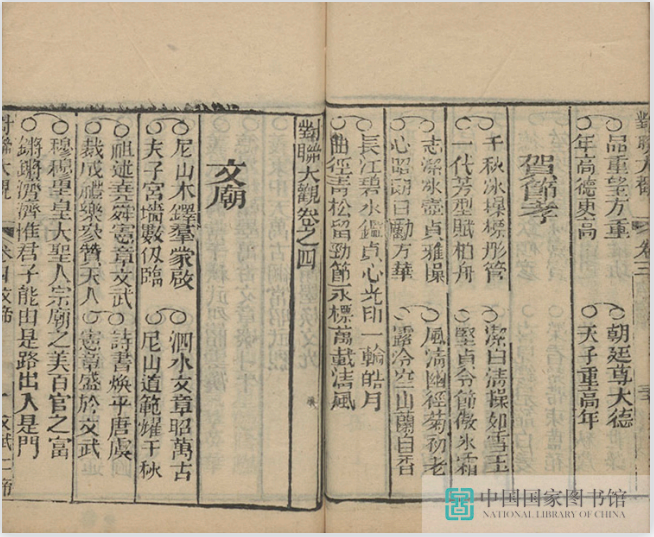 對聯大觀 卷三
品重望方重 朝廷尊大德
年高德更高 天子重高年
賀節孝
千秋冰操標彤管 潔白清操如雪玉
一代芳型賦柏舟 堅貞令節傲冰霜
志潔冰壺貞雅操 風清幽徑菊初老
心昭朗日勵方華 露冷空山蘭自香
長江碧水鑑貞心光印一輪皓月
曲徑青松留勁節永標萬載清風
對聯大觀卷之四
文廟
尼山木鐸羣蒙啟 泗水文章昭萬古
夫子宮墻數仞臨 尼山道範耀千秋
祖述堯舜憲章文武 詩書煥乎唐虞
裁成禮樂參贊天人 憲章盛於文武
穆穆皇皇大聖人宗廟之美百官之富
鏘鏘濟濟惟君子能由是路出入是門
對聯大觀 卷四文帝 一 文武二帝
中国国家图书馆
NATIONAL LIBRARY OF CHINA